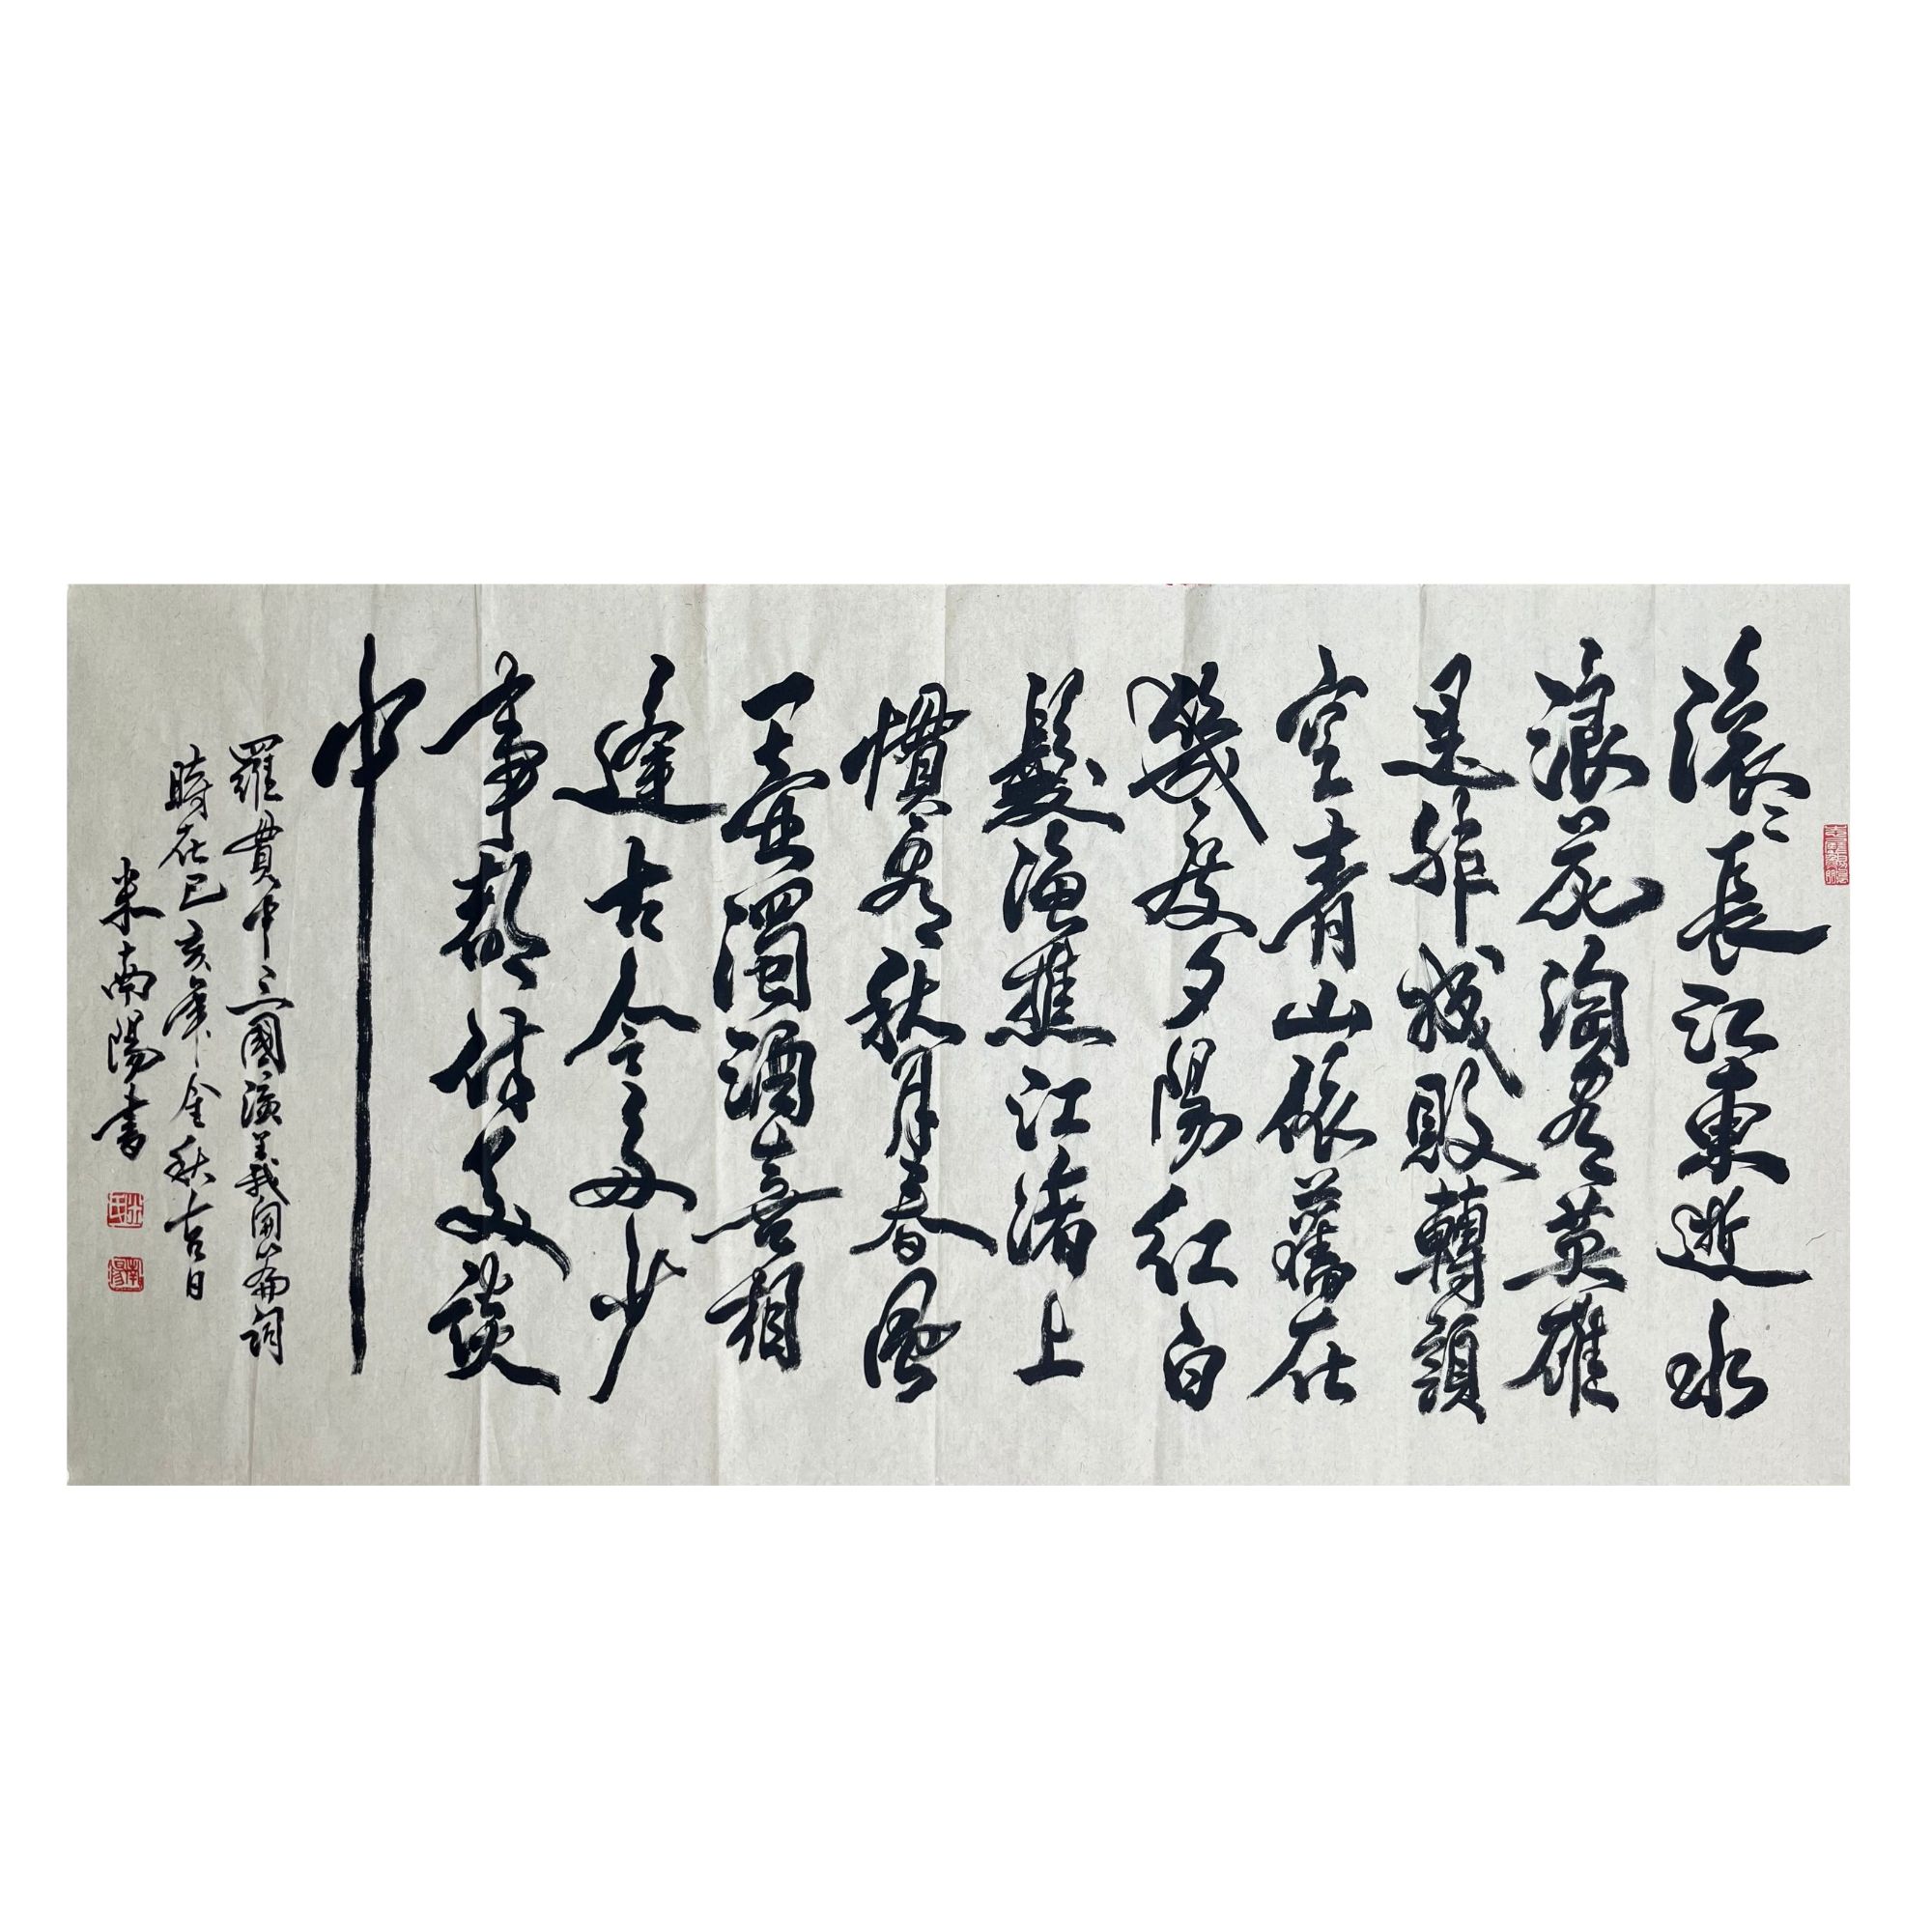 滚〻長江東逝水
浪花淘盡英雄
是非成敗轉頭
空青山依舊在
幾度夕陽紅白
髮漁樵江渚上
慣看秋月春風
一壺濁酒喜相
逢古今多少
事都付笑談
中
羅貫中三國演義開篇詞
時在己亥年金秋吉日
米南陽書